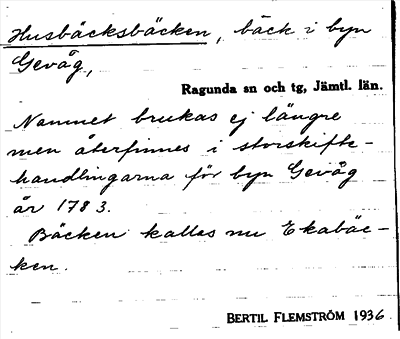 Husbäcksbäcken, bäck i byn
Gevåg,
Ragunda sn och tg, Jämtl. län.
Namnet brukas ej längre
men återfinnes i storskifts-
handlingarna för byn Gevåg
år 1783.
Bäcken kallas nu Ekabäc-
ken.
BERTIL FLEMSTRÖM 1936